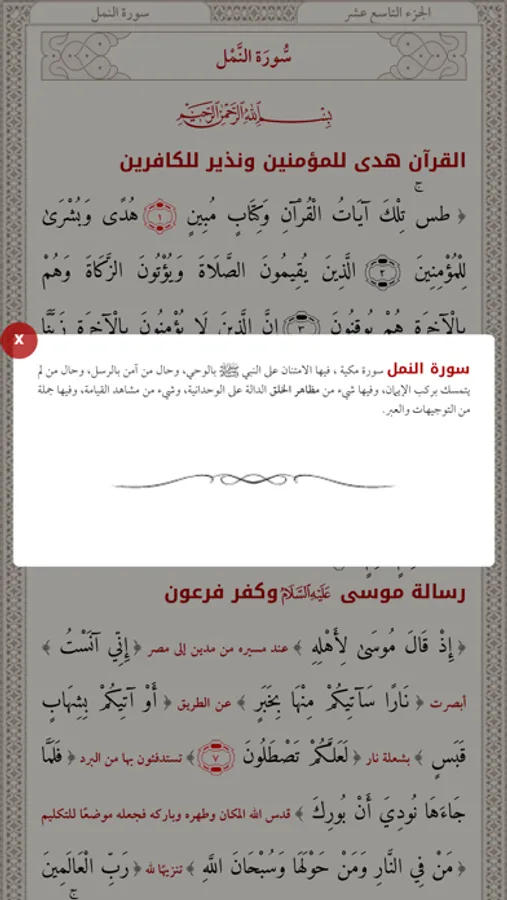 الجزء التاسع عشر
سورة النمل
سُّورَة النَّمْل
بِسْمِ اللَّهِ الرَّحْمَٰنِ الرَّحِيمِ
القرآن هدى للمؤمنين ونذير للكافرين
﴿ طس ۚ تِلْكَ آيَاتُ الْقُرْآنِ وَكِتَابٍ مُبِينٍ ١ هُدًى وَبُشْرَىٰ
لِلْمُؤْمِنِينَ ٢ الَّذِينَ يُقِيمُونَ الصَّلَاةَ وَيُؤْتُونَ الزَّكَاةَ وَهُمْ
بِالْآخِرَةِ هُمْ يُوقِنُونَ ٣ إِنَّ الَّذِينَ لَا يُؤْمِنُونَ بِالْآخِرَةِ زَيَّنَّا
X
سورة النمل سورة مكية ، فيها الامتنان على النبي ﷺ بالوحي، وحال من آمن بالرسل، وحال من لم
يتمسك بركب الإيمان، وفيها شيء من مظاهر الخلق الدالة على الوحدانية، وشيء من مشاهد القيامة، وفيها جملة
من التوجيهات والعبر.
رسالة موسى عَلَيْهِ السَّلَامُ وكفر فرعون
﴿ إِذْ قَالَ مُوسَىٰ لِأَهْلِهِ ﴾ عند مسيره من مدين إلى مصر ﴿ إِنِّي آنَسْتُ ﴾
أبصرت ﴿ نَارًا سَآتِيكُمْ مِنْهَا بِخَبَرٍ ﴾ عن الطريق ﴿ أَوْ آتِيكُمْ بِشِهَابٍ
قَبَسٍ ﴾ بشعلة نار ﴿ لَعَلَّكُمْ تَصْطَلُونَ ٧ ﴾ تستدفئون بها من البرد ﴿ فَلَمَّا
جَاءَهَا نُودِيَ أَنْ بُورِكَ ﴾ قدس الله المكان وطهره وباركه فجعله موضعًا للتكليم
﴿ مَنْ فِي النَّارِ وَمَنْ حَوْلَهَا وَسُبْحَانَ اللَّهِ ﴾ تنزيهًا لله ﴿ رَبِّ الْعَالَمِينَ